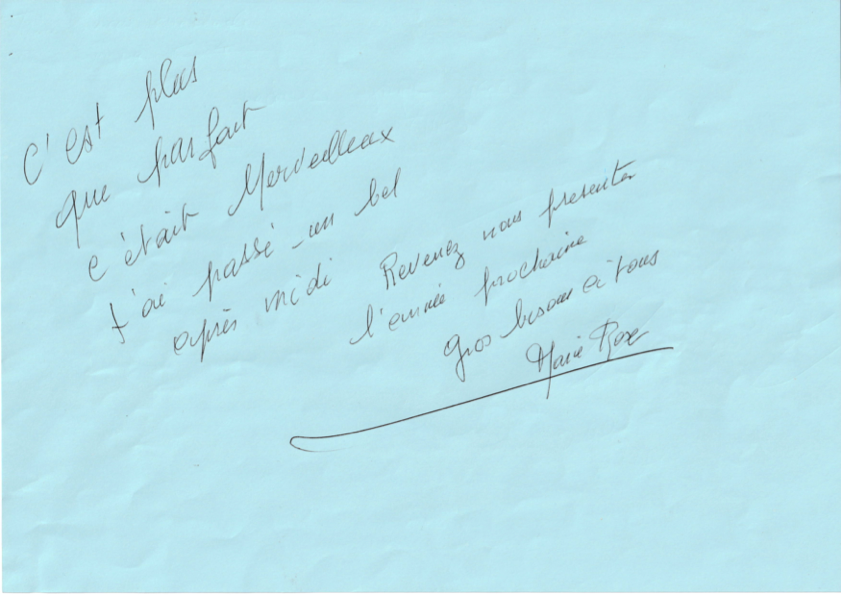 C'est plus
que parfait
c'était Merveilleux
J'ai passé un bel
après midi
Revenez nous presenter
l'année prochaine
Gros bisous à tous
Marie Rose